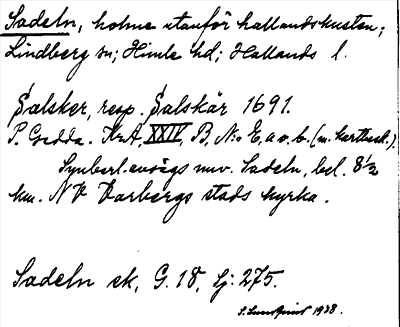 Sadeln, holme utanför hallandskusten;
Lindberg sn; Himle hd; Hallands l.
Salsker, resp. Salskär 1691.
P. Gedda. KrA, XXIV, B, N:o E, a o. b. (m. karttext.)
Synberl. avsågs nuv. Sadeln, bel. 8½
km. NV Varbergs stads kyrka.
Sadeln sk, G. 18, Lj: 275.
S. Lundqvist 1938.